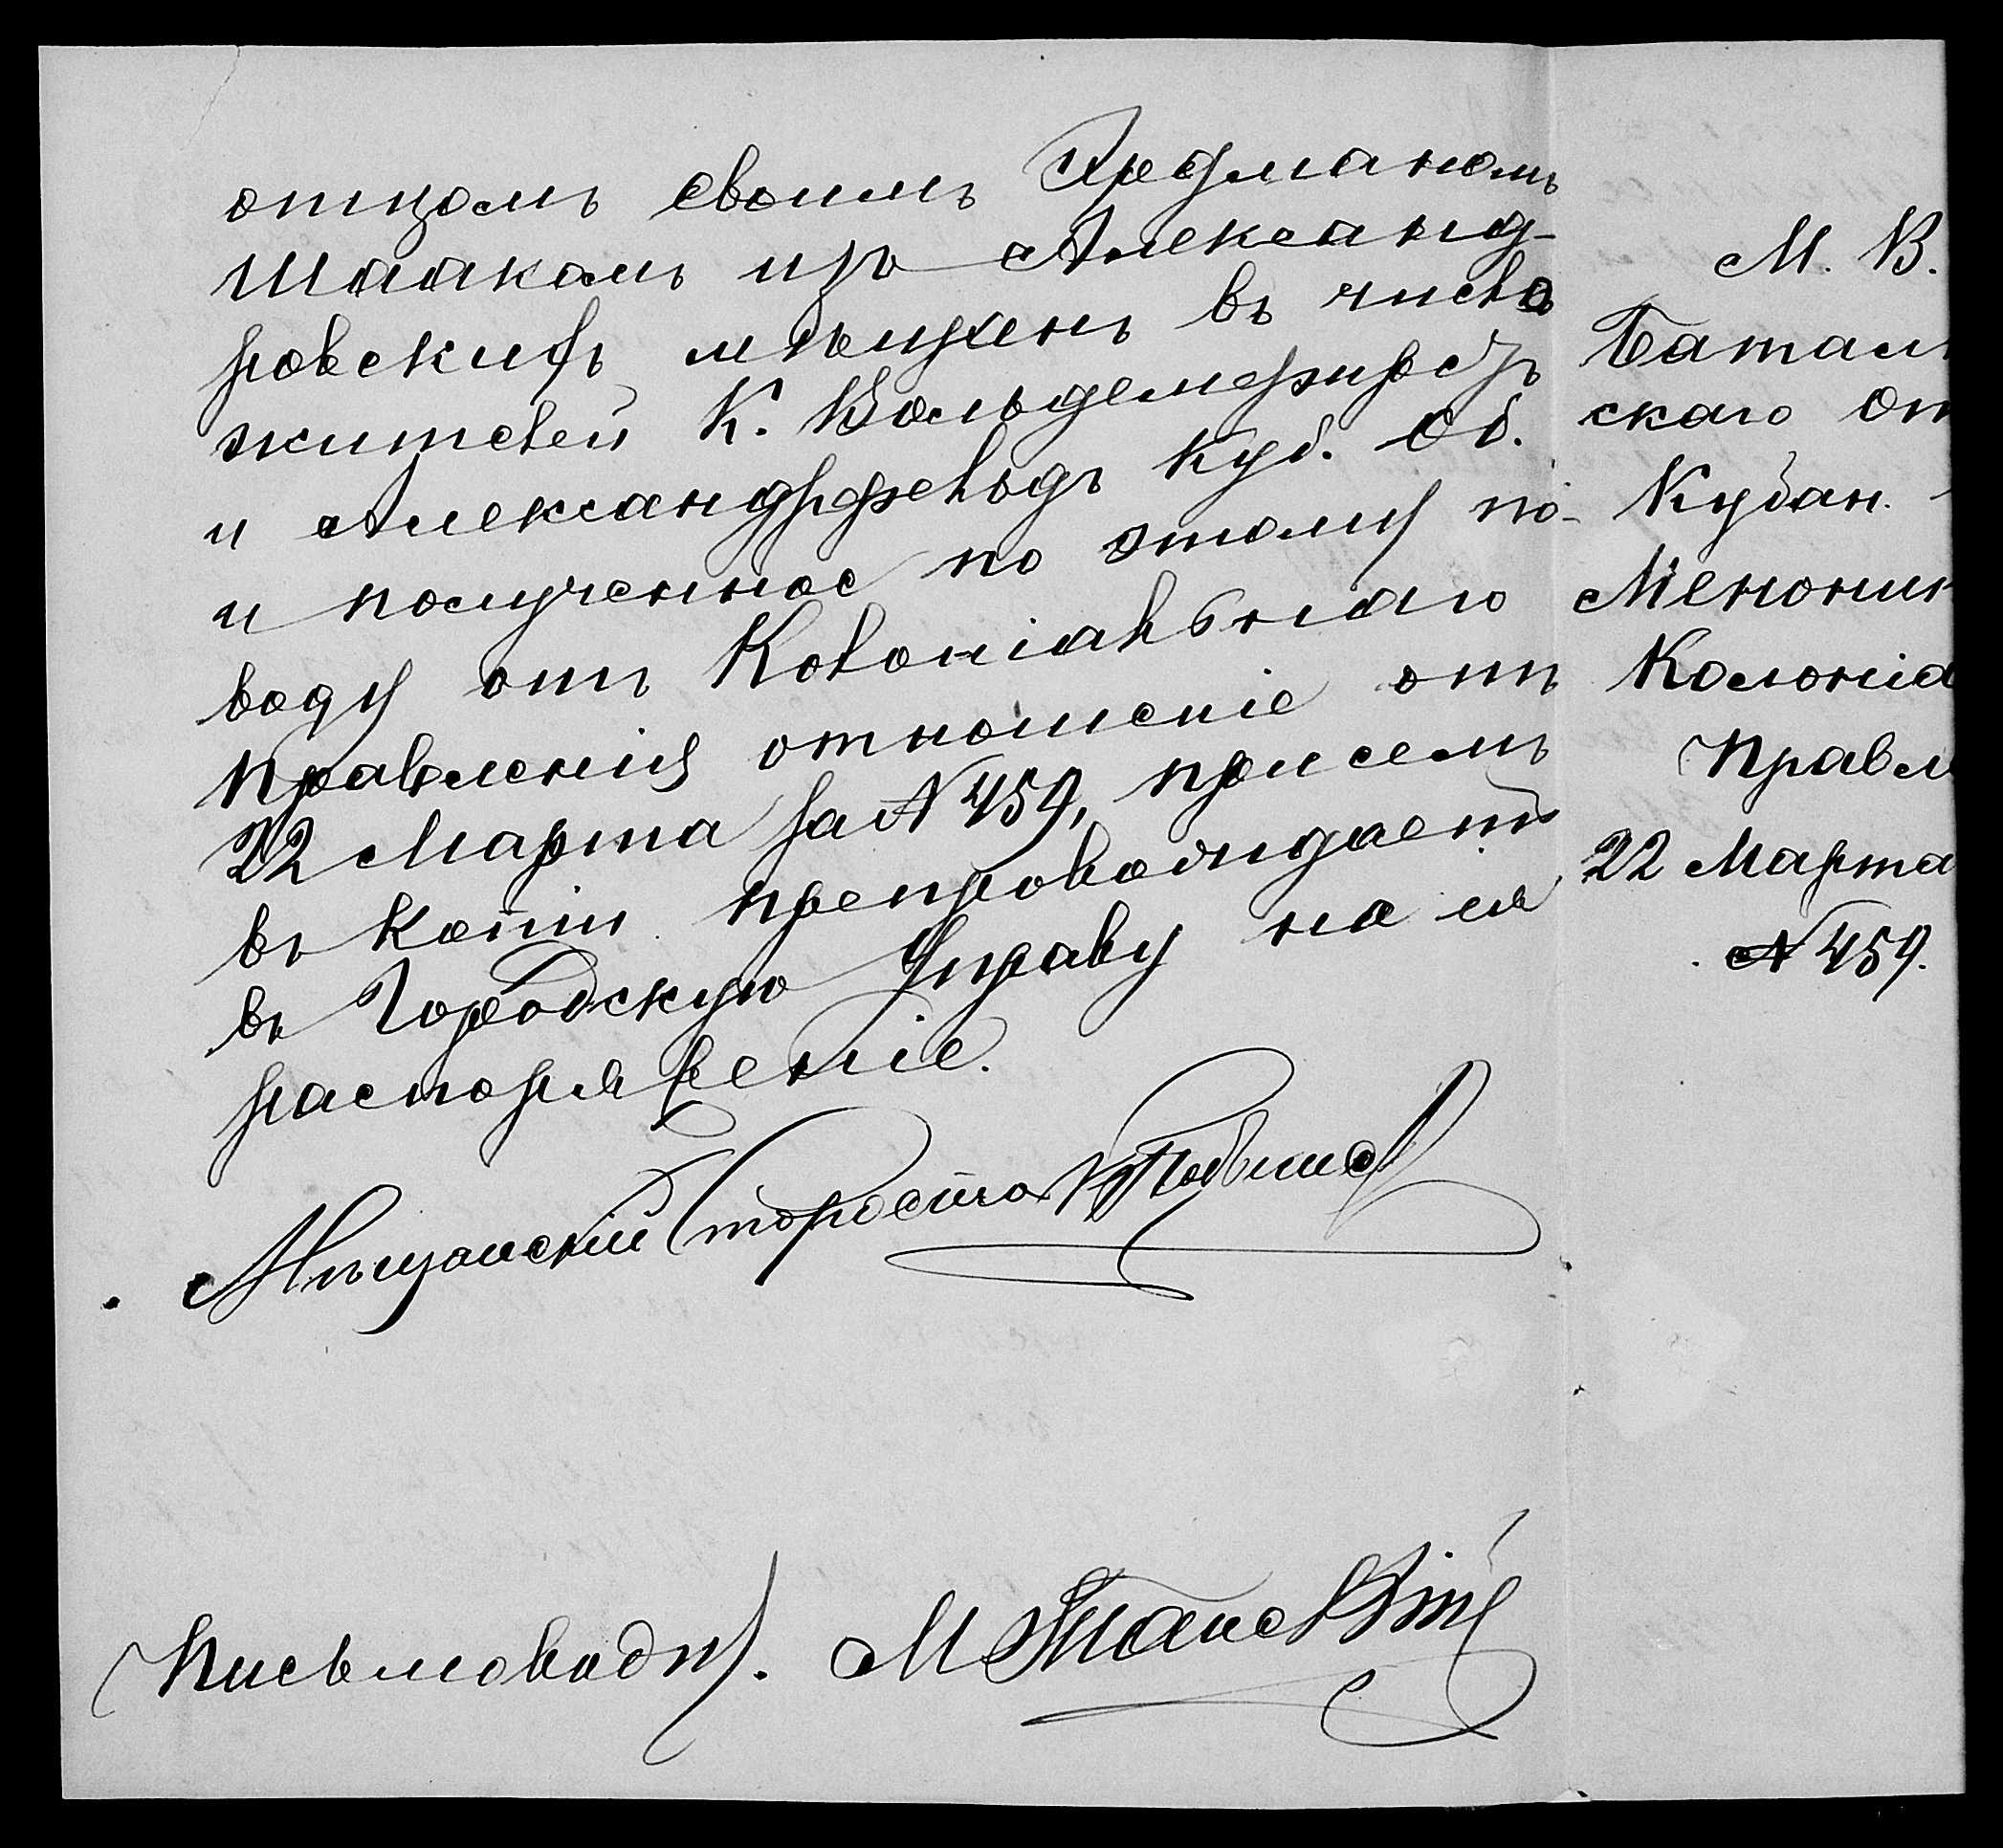 отцомъ своимъ Эрдманомъ
Шаакомъ изъ Александ-
ровскихъ мѣщанъ въ число
жителей К. Вольдемфирстъ
и Александрфельдъ Куб. Об.
и полученное по этому по-
воду отъ Колоніальнаго
Правленія отношеніе отъ
22 Марта за № 459, при семъ
въ копіи препровождаетъ
въ Городскую Управу на ея
распоряженіе.
Мѣщанскій Староста
Письмовод.
М. В.
Баталп
скаго От
Кубан.
Менонин
Колоніа
Правл
22 Марта
№ 459.